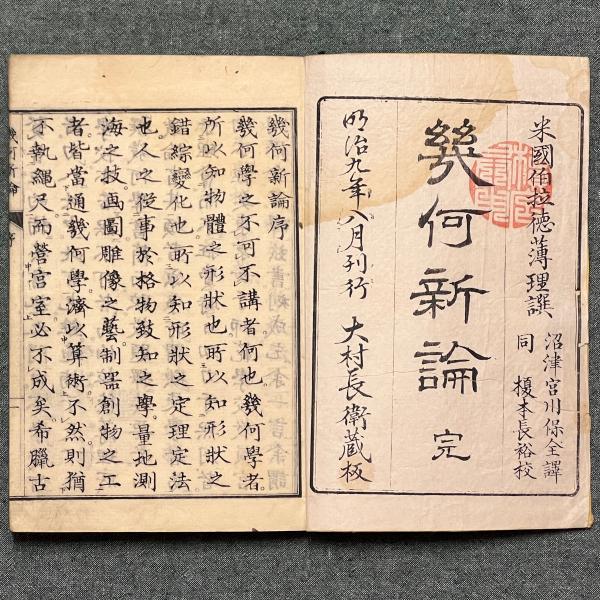 米國伯拉德薄理譔
沼津宮川保全譯
同 榎本長裕校
幾何新論 完
明治九年八月刊行 大村長衛蔵板
幾何新論序
幾何學之不可不講者何也幾何學者。
所以知物體之形狀也。所以知形狀之
錯綜變化也。所以知形狀之定理定法
也。人之從事於格物致知之學。量地測
海之技。画圖雕像之藝。制器創物之工
者。皆當通幾何學。濟以算術。不然則猶
不執繩尺而營宮室。必不成矣。希臘古
幾何新論 序